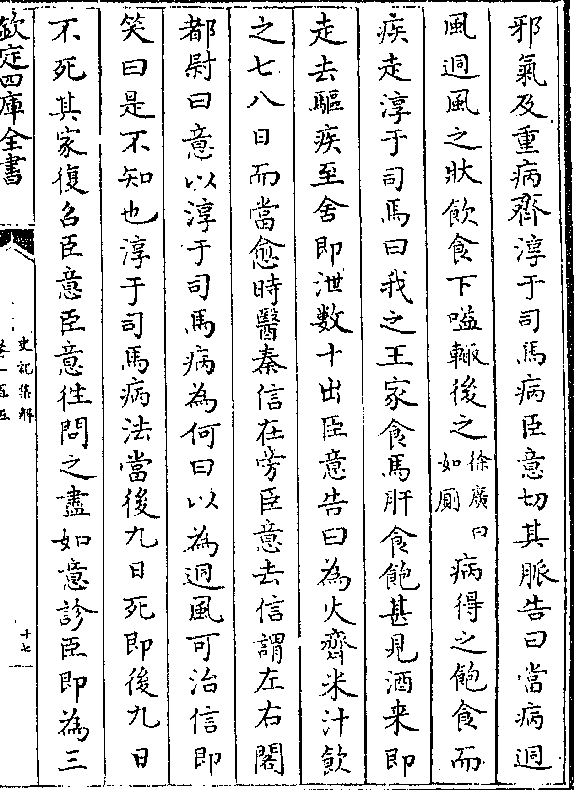 邪氣及重病齊淳于司馬病臣意切其脈告曰當病迵
風迵風之狀飲食下嗌輙後之徐廣曰如厠病得之飽食而
疾走淳于司馬曰我之王家食馬肝食飽甚見酒来即
走去驅疾至舍即泄數十出臣意告曰為火齊米汁飲
之七八日而當愈時醫秦信在旁臣意去信謂左右閣
都尉曰意以淳于司馬病為何曰以為迵風可治信即
笑曰是不知也淳于司馬病法當後九日死即後九日
不死其家復召臣意臣意徃問之盡如意診臣即為三
欽定四庫全書
史記集解
卷一百五
十七